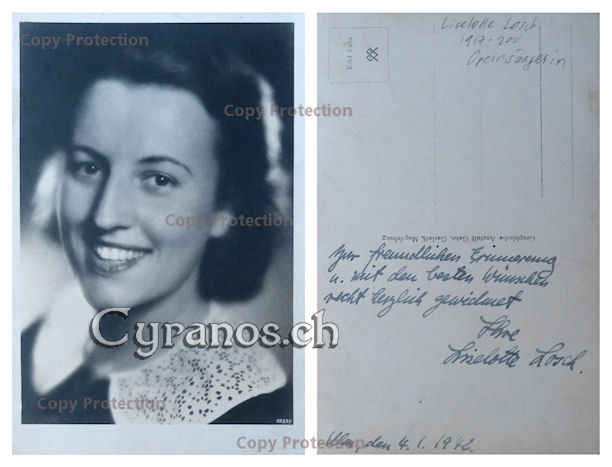 Copy Protection
Copy Protection
Copy Protection
Cyranos.ch
Copy Protection
Copy Protection
Liselotte Losch
1917-2011
Opernsängerin
Echt Foto
Graphische Anstalt Gebr. Garloff, Magdeburg
Zur freundlichen Erinnerung
u. mit den besten Wünschen
recht herzlich gewidmet
Ihre
Liselotte Losch.
Ulm, den 4. 1. 1942.